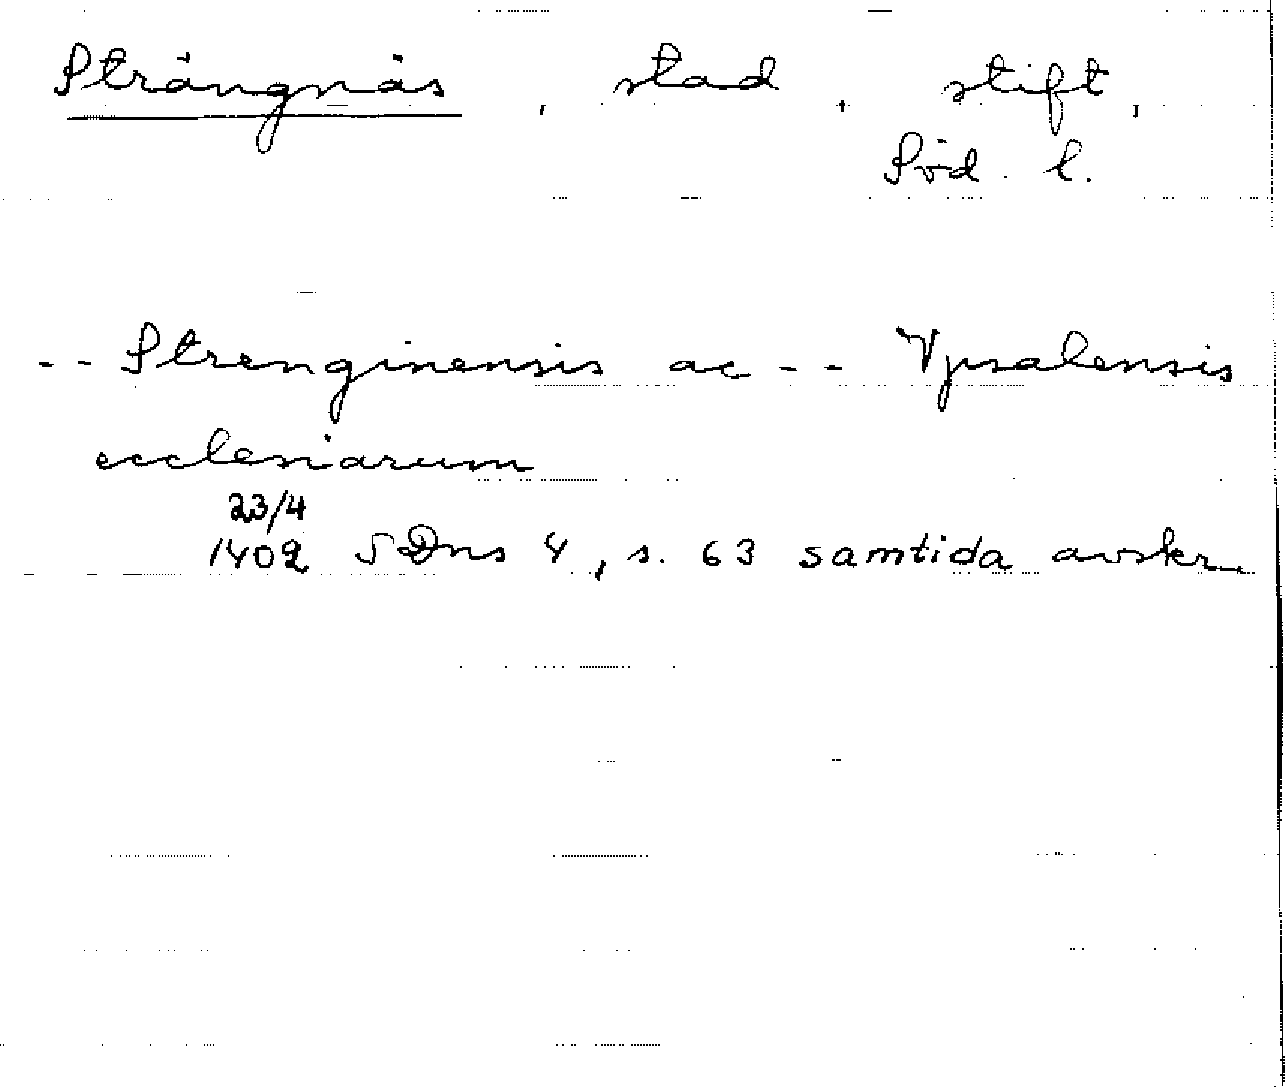 Strängnäs, stad, stift,
Söd. l.
-- Strenginensis ac -- Vpsalensis
ecclesiarum
23/4
1402 SDns 4, s. 63 samtida avskr.